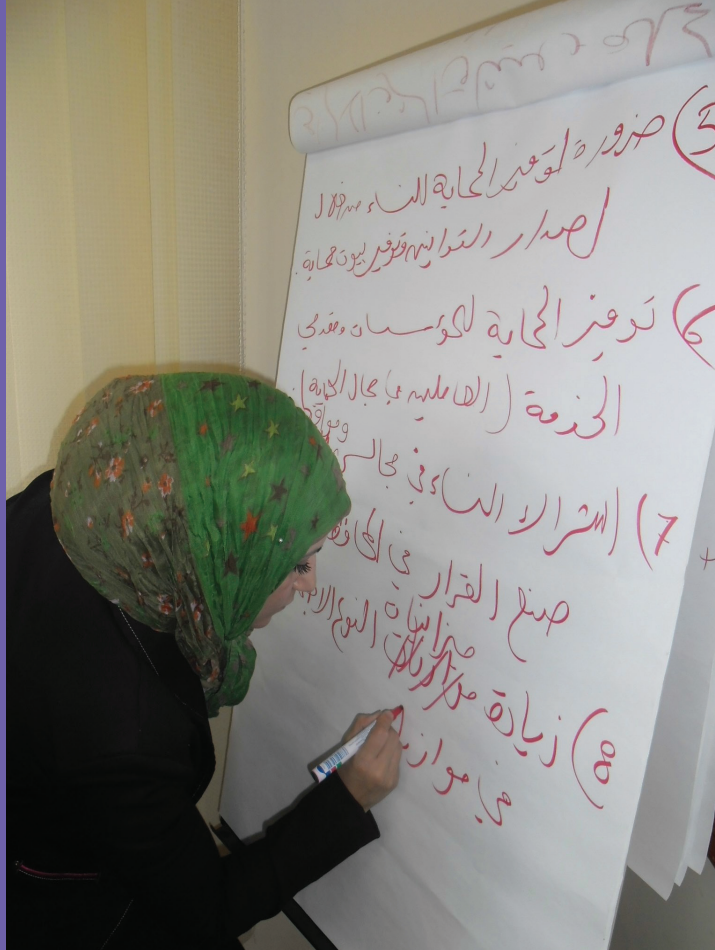 5) ضرورة توفير الحماية للنساء من خلال
إصدار القوانين وتوفير بيوت حماية.
6) توفير الحماية للمؤسسات ومقدمي
الخدمة (العاملين في مجال الحماية)
7) إشراك النساء في مجالس ومواقع
صنع القرار في
8) زيادة ميزانية النوع
في